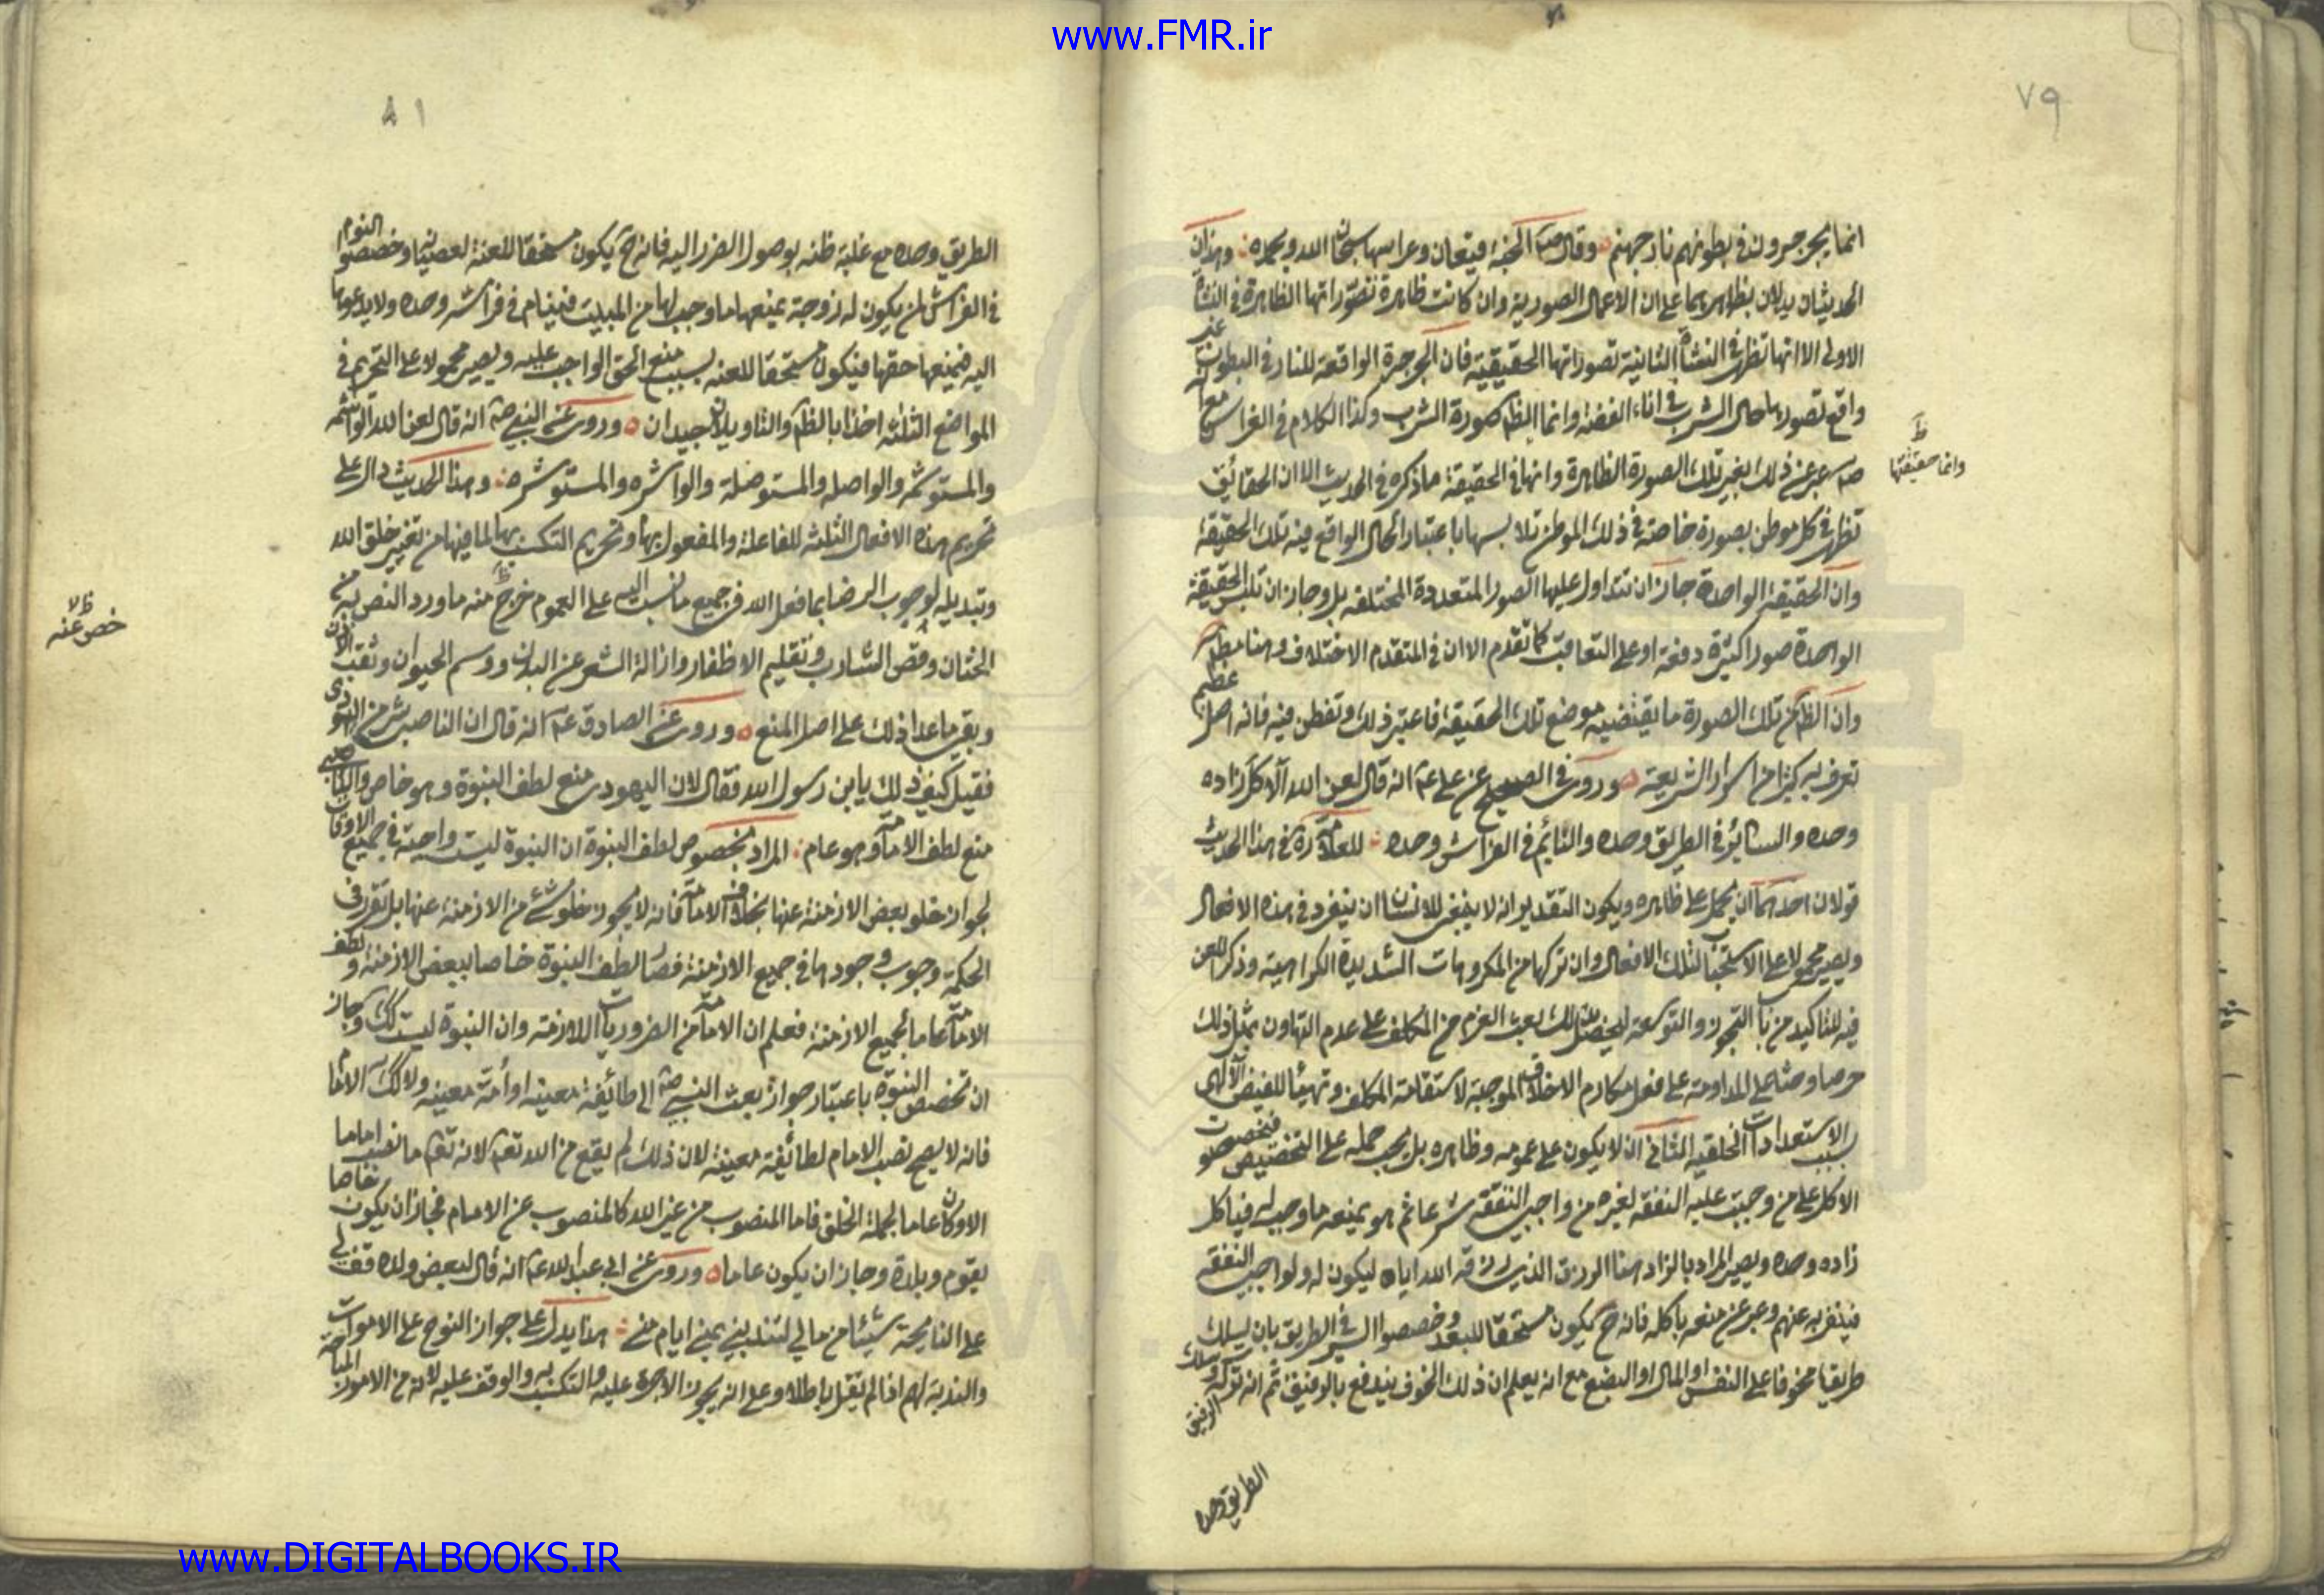 www.FMR.ir
٧٩
انما يجرجرون في بطونهم نار جهنم وقال ص الجنة قيعان وغراسها سبحان الله وبحمده وهذان
الحديثان يدلان بظاهرهما على ان الاعمال الصورية وان كانت ظاهرة بتصوراتها الظاهرة في النشأة
الاولى الا انها تظهر في النشأة الثانية بصوراتها الحقيقية فان الجرجرة الواقعة للنار في البطون غير
واقع تصورها حال الشرب في اناء الفضة وانما الظ صورة الشرب وكذا الكلام في الغراس مع انه
ص عبر عن ذلك بغير تلك الصورة الظاهرة وانها في الحقيقة ما ذكره في الحديث الا ان الحقائق
ظ
وانما حقيقتها
تظهر في كل موطن بصورة خاصة في ذلك الموطن تلابسها باعتبار الحال الواقع فيه تلك الحقيقة
وان الحقيقة الواحدة جاز ان تتداول عليها الصور المتعددة المختلفة بل وجاز ان تلبس الحقيقة
الواحدة صورا كثيرة دفعة او على التعاقب كما تقدم الا ان في المتقدم الاختلاف وهنا
وان الظ من تلك الصورة ما يقتضيه موضع تلك الحقيقة فاعتبر ذلك وتفطن فيه فانه اصل عظيم
تعرف به كثيرا من اسرار الشريعة وروى في الصحيح عن علي ع انه قال لعن الله آكل زاده
وحده والسائر في الطريق وحده والنائم في الفراش وحده للعلامة ره في هذا الحديث
قولان احدهما ان يحمل على ظاهره ويكون التقدير انه لا ينبغي للانسان ان ينفرد في هذه الافعال
ويصير محمولا على الاستحباب لتلك الافعال وان تركها من المكروهات الشديدة الكراهية وذكر اللعن
فيه للتاكيد من باب التجوز والتوسعة ليحصل بذلك بعث العزم من المكلف على عدم التهاون بمثل ذلك
حرصا وحثا على المداومة على فعل مكارم الاخلاق الموجبة لاستقامة المكلف وتهيئا للفيض الالهي
بسبب الاستعدادات الخلقية الثاني ان لا يكون على عمومه وظاهره بل يجب حمله على التخصيص فتخصصوا
الاكل على من وجبت عليه النفقة لغيره من واجبي النفقة شرعا ثم هو يمنعه ما وجب له فياكل
زاده وحده ويصير المراد بالزاد هنا الرزق الذي رزقه الله اياه ليكون له ولواجبي النفقة
فينفرد به عنهم وعبر عن منعه باكله فانه ح يكون مستحقا للبعد وخصصوا السير في الطريق بان يسلك
طريقا مخوفا على النفس او المال او البضع مع انه يعلم ان ذلك الخوف يندفع بالرفيق ثم انه ترك الرفيق وسلك
الطريق وحده
٨١
الطريق وحده مع غلبة ظنه بوصول الضرر اليه فانه ح يكون مستحقا للعنة لعصيانه وخصصوا النوم
في الفراش لمن يكون له زوجة يمنعها ما وجب لها من المبيت فينام في فراشه وحده ولا يدعوها
اليه فيمنعها حقها فيكون مستحقا للعنه بسبب منع الحق الواجب عليه ويصير محمولا على التحريم في
المواضع الثلثه اخذا بالظ والتاويلان جيدان وروى عن النبي ص انه قال لعن الله الواشمه
والمستوشمه والواصله والمستوصلة والواشره والمستوشره وهذا الحديث دال على
تحريم هذه الافعال الثلثه للفاعلة والمفعول بها وتحريم التكسب بها لما فيها من تغيير خلق الله
وتبديله لوجوب الرضا بما فعل الله في جميع ما نسب اليه على العموم خرج منه ما ورد النص به من
خص عنه
ظ لا
الختان وقص الشارب وتقليم الاظفار وازالة الشعر عن البدن ووسم الحيوان وثقب الاذن
وبقي ما عدا ذلك على اصل المنع وروى عن الصادق ع انه قال ان الناصب شر من اليهودى
فقيل كيف ذلك يابن رسول الله فقال لان اليهودى منع لطف النبوة وهو خاص والناصبي
منع لطف الامامة وهو عام المراد بخصوص لطف النبوة ان النبوة ليست واجبة في جميع الاوقات
لجواز خلو بعض الازمنة عنها بخلاف الامامة فانه لا يجوز خلو شئ من الازمنة عنها بل تقرر في
الحكمة وجوب وجودها في جميع الازمنة فصار لطف النبوة خاصا ببعض الازمنة ولطف
الامامة عاما لجميع الازمنة فعلم ان الامامة من الضروريات اللازمة وان النبوة ليست كذلك وجاز
ان تخصص النبوة باعتبار جواز بعث النبي ص الى طائفة معينة او أمة معينه ولا كذلك الامام
فانه لا يصح نصب الامام لطائفة معينة لان ذلك لم يقع من الله تعالى لانه تعالى ما نصب اماما
الا وكان عاما لجملة الخلق فاما المنصوب من غير الله كالمنصوب عن الامام فجاز ان يكون خاصا
بقوم وبلدة وجاز ان يكون عاما وروى عن ابي عبد الله ع انه قال لبعض ولاه قف لي
على النايحة شيئا من مالي لتندبني بمنى ايام منى هذا يدل على جواز النوح على الاموات
والندبة لهم اذا لم تقل باطلا وعلى انه يجوز الاجرة عليه والتكسب به والوقف عليه لانه من الامور المباحة
www.DIGITALBOOKS.IR